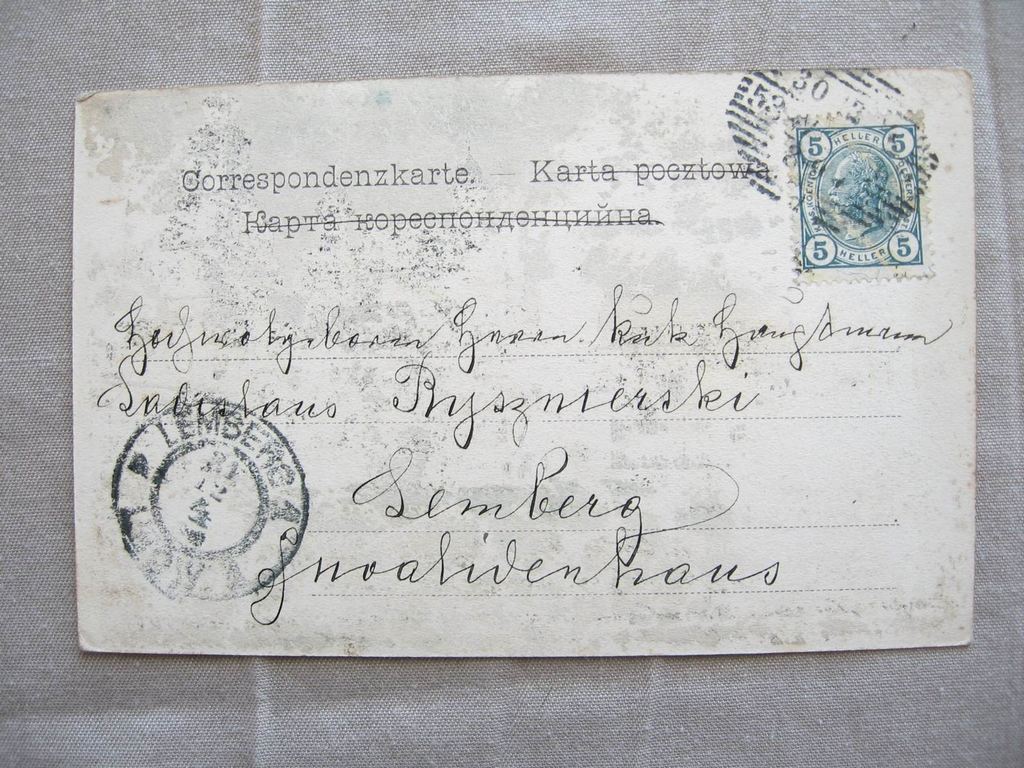 Correspondenzkarte. — Karta pocztowa.
Карта кореспонденційна.
30
5 HELLER 5
5 HELLER 5
Hochwohlgeboren Herrn k u k Hauptmann
Ladislaus Ryszmierski
Lemberg
Invalidenhaus
LEMBERG 1
LWÓW 1